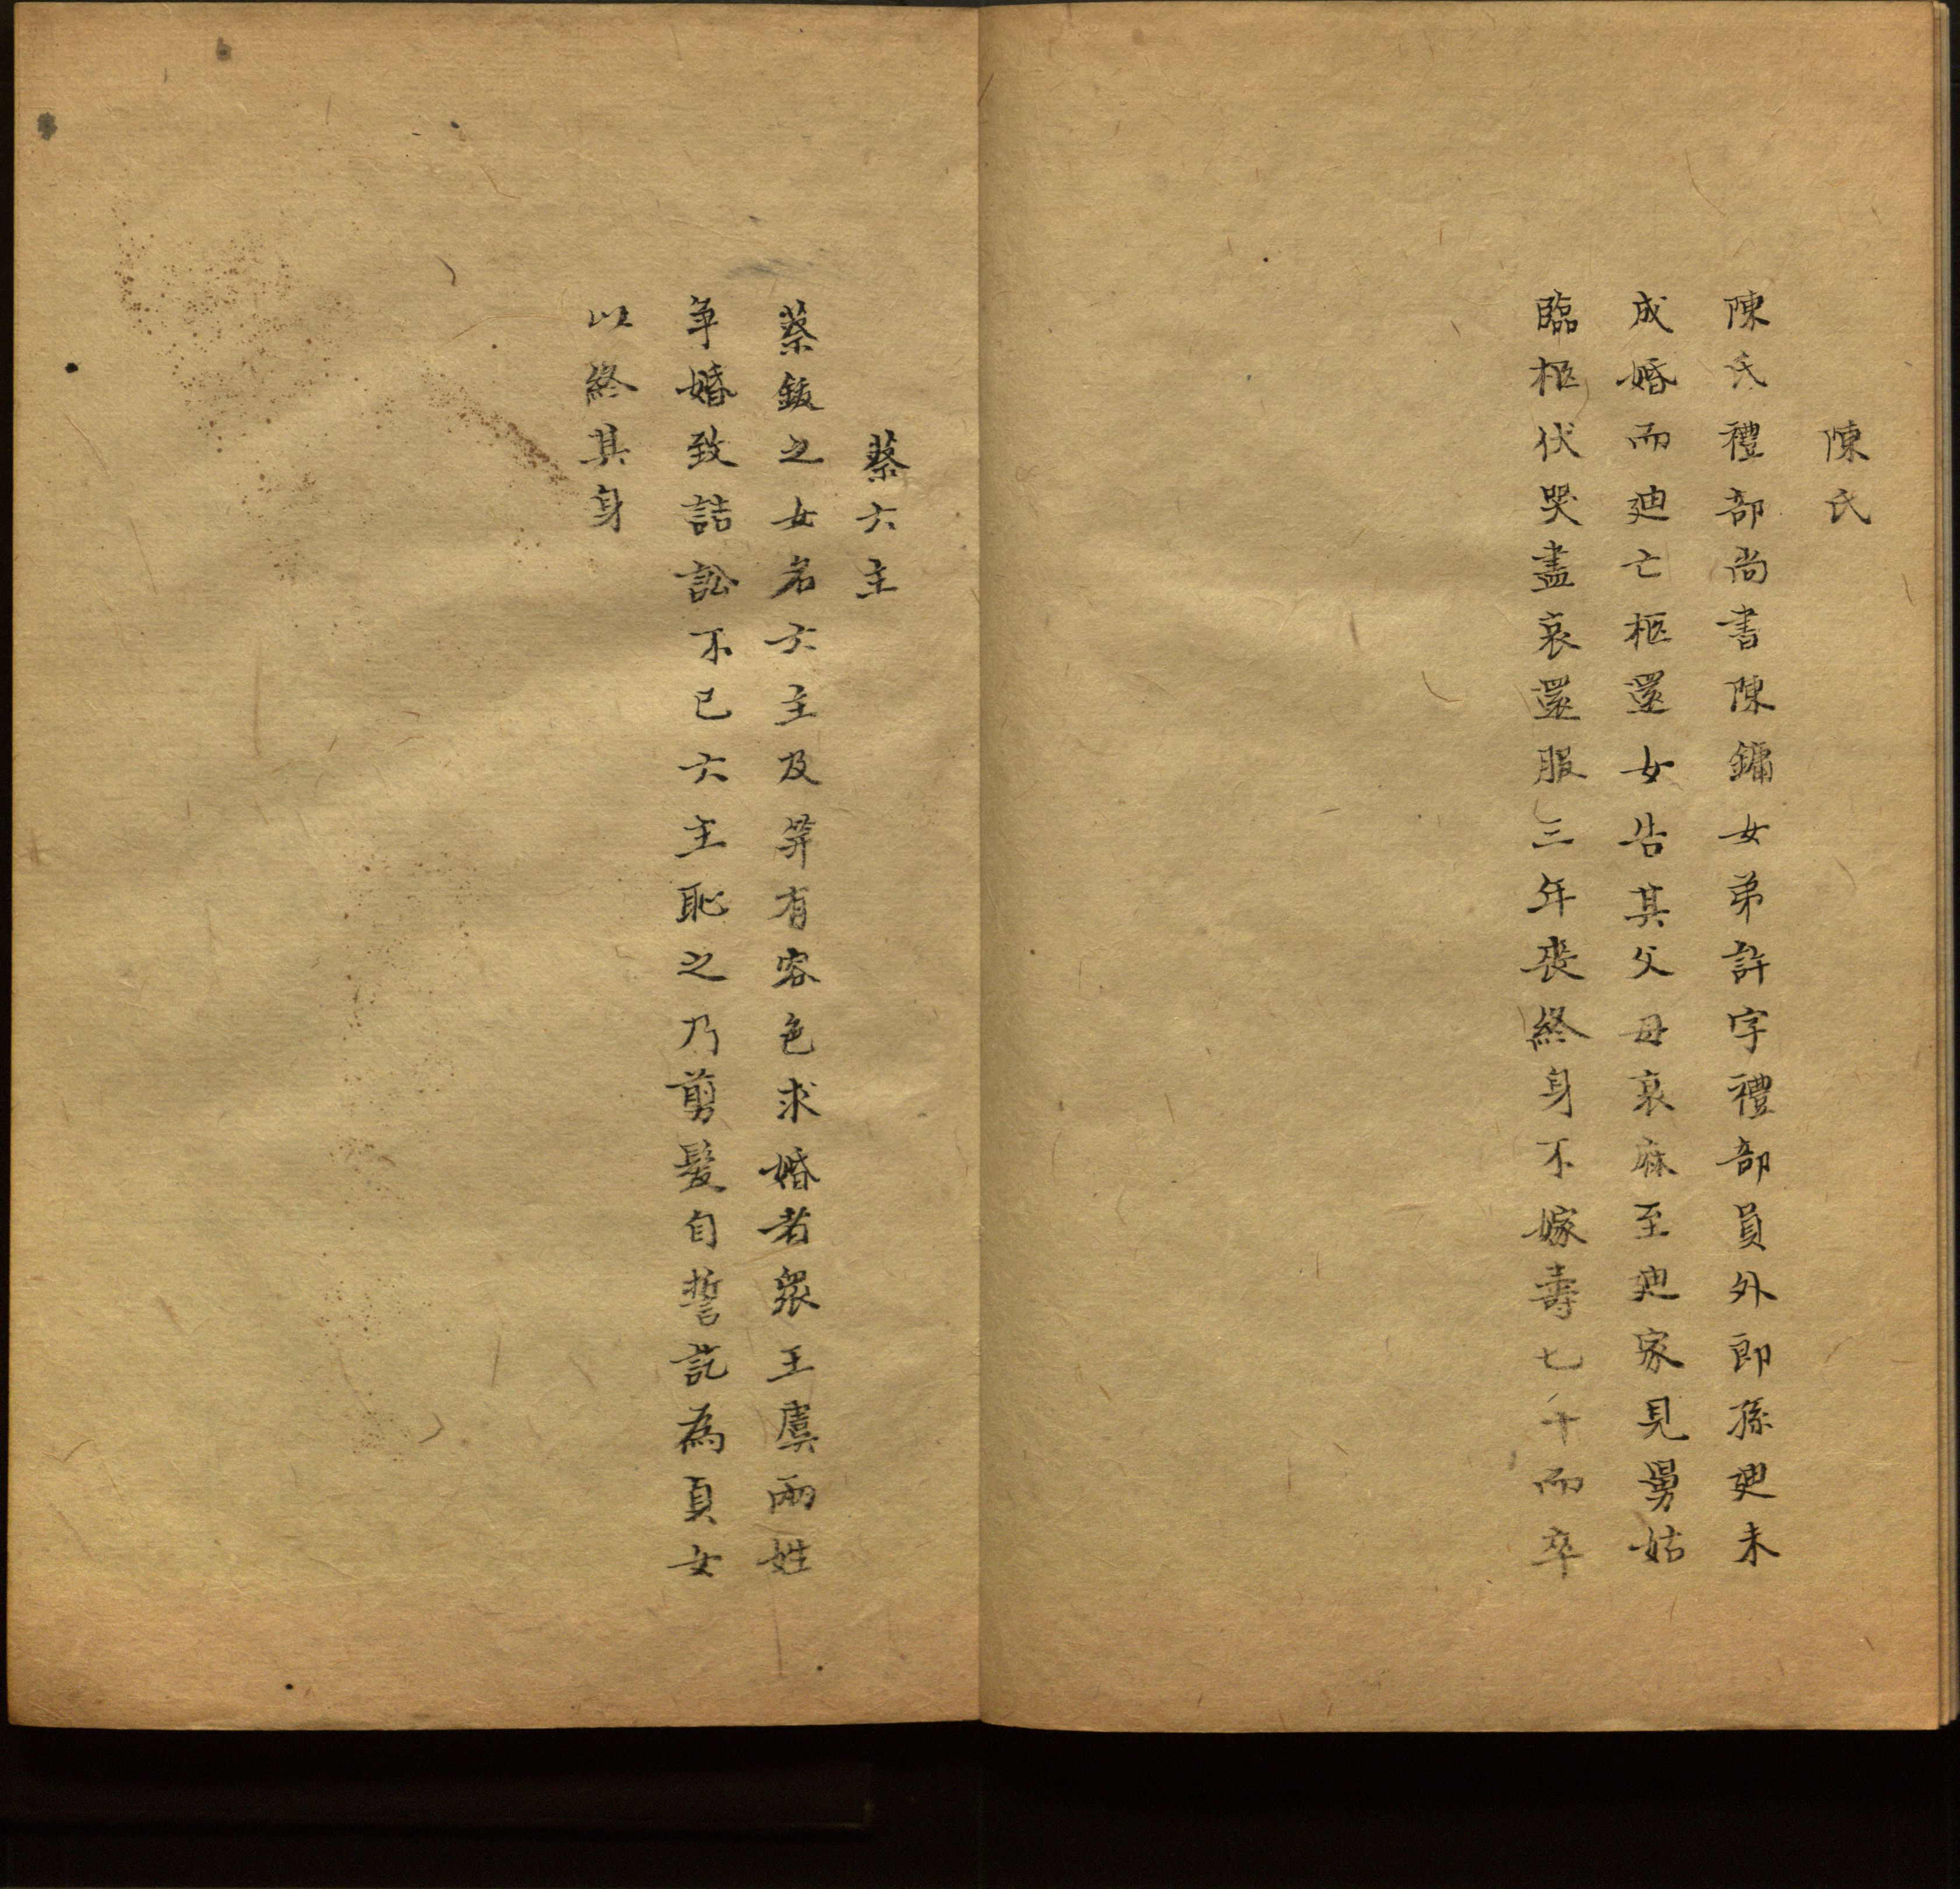 陳氏
陳氏禮部尚書陳鏞女弟許字禮部員外郎孫廸未
成婚而廸亡柩還女告其父母哀麻至廸家見舅姑
臨柩伏哭盡哀還服三年喪終身不嫁壽七十而卒
蔡六主
蔡鈑之女名六主及笄有容色求婚者眾王虞兩姓
争婚致詰訟不已六主恥之乃剪髮自誓訖為貞女
以終其身